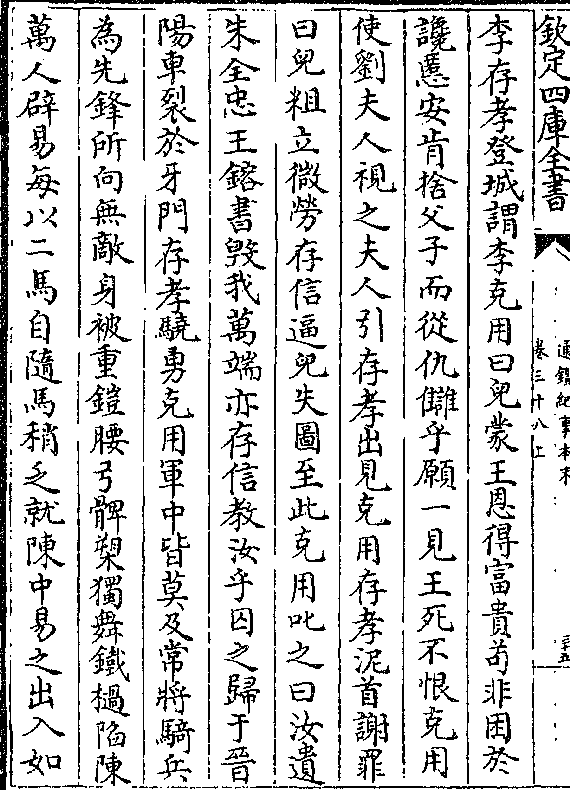 欽定四庫全書
通鑑紀事本末
卷三十八上
二十五
李存孝登城謂李克用曰兒蒙王恩得富貴苟非困於
讒慝安肯捨父子而從仇讎乎願一見王死不恨克用
使劉夫人視之夫人引存孝出見克用存孝泥首謝罪
曰兒粗立微勞存信逼兒失圖至此克用叱之曰汝遺
朱全忠王鎔書毀我萬端亦存信教汝乎囚之歸于晉
陽車裂於牙門存孝驍勇克用軍中皆莫及常將騎兵
為先鋒所向無敵身被重鎧腰弓髀槊獨舞鐵檛陷陳
萬人辟易每以二馬自隨馬稍乏就陳中易之出入如